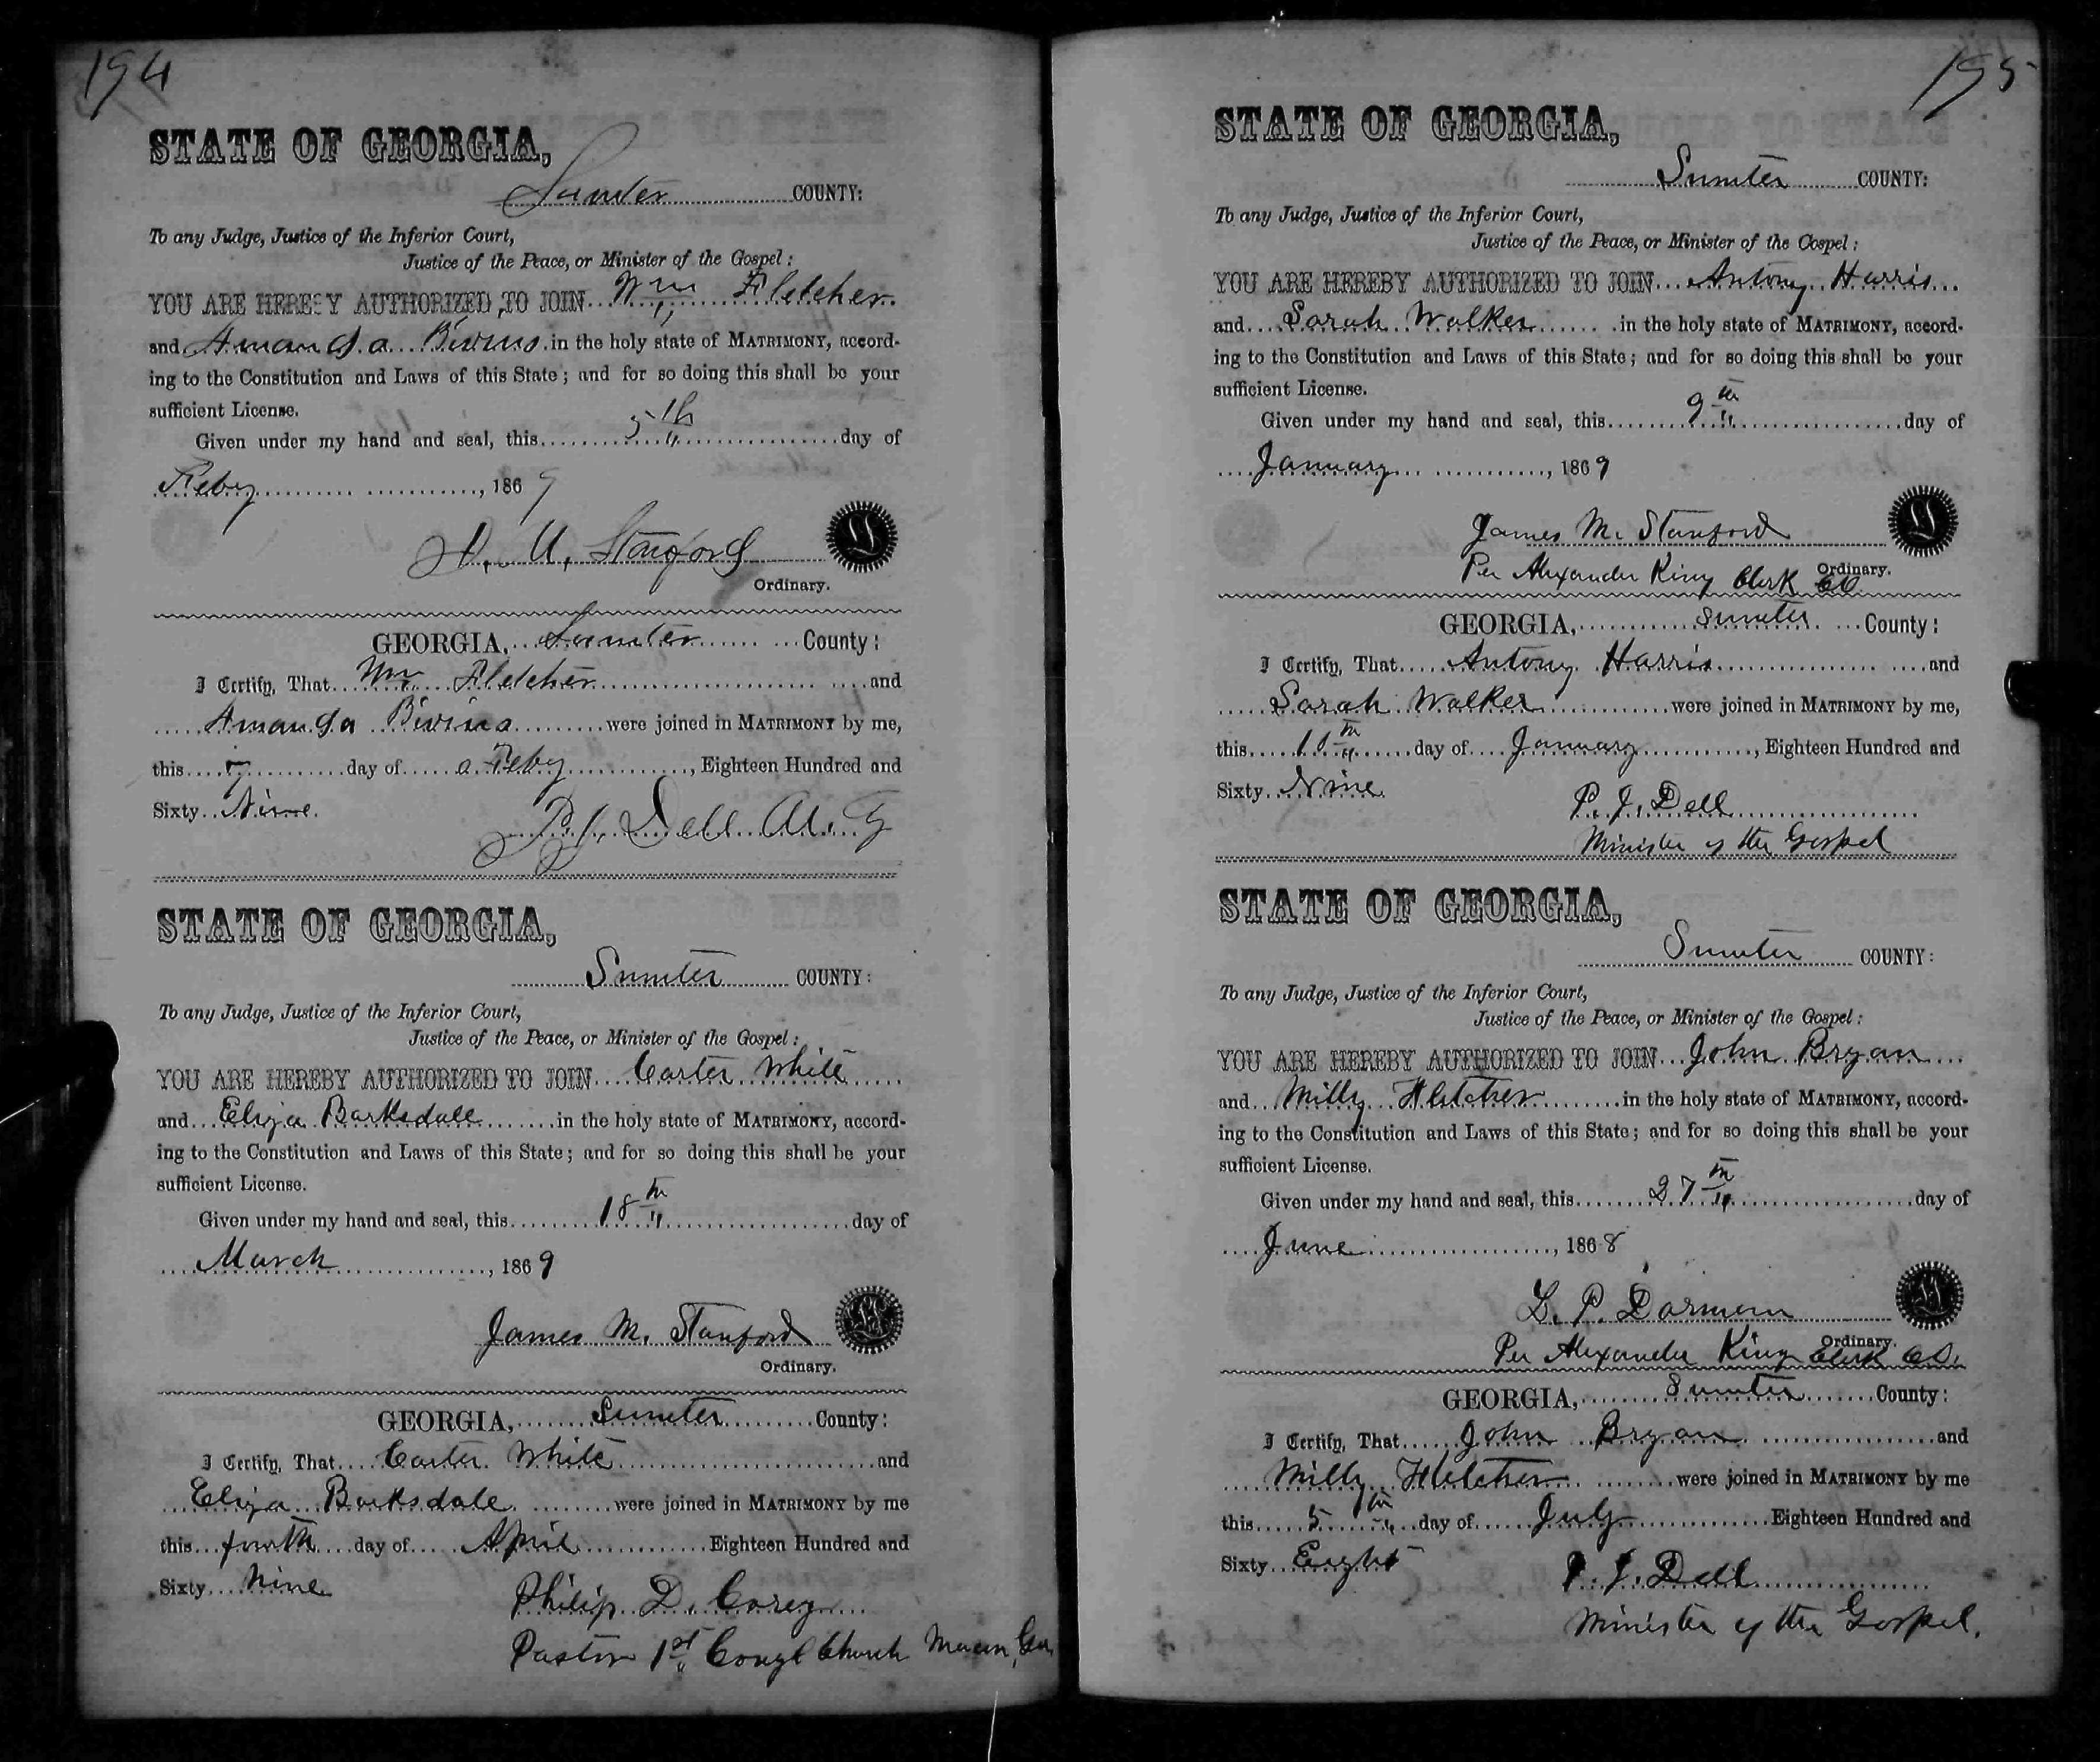 194
STATE OF GEORGIA,
Sumter COUNTY:
To any Judge, Justice of the Inferior Court,
Justice of the Peace, or Minister of the Gospel:
YOU ARE HEREBY AUTHORIZED TO JOIN Wm Fletcher
and Amanda Bivins in the holy state of MATRIMONY, accord-
ing to the Constitution and Laws of this State; and for so doing this shall be your
sufficient License.
Given under my hand and seal, this 5th day of
Feby, 1869
Stanford
Ordinary.
GEORGIA, Sumter County:
I Certify, That Wm Fletcher and
Amanda Bivins were joined in MATRIMONY by me,
this 7 day of Feby, Eighteen Hundred and
Sixty Nine.
P. J. Dell M. G
STATE OF GEORGIA,
Sumter COUNTY:
To any Judge, Justice of the Inferior Court,
Justice of the Peace, or Minister of the Gospel:
YOU ARE HEREBY AUTHORIZED TO JOIN Carter White
and Eliza Barksdale in the holy state of MATRIMONY, accord-
ing to the Constitution and Laws of this State; and for so doing this shall be your
sufficient License.
Given under my hand and seal, this 18th day of
March, 1869
James M. Stanford
Ordinary.
GEORGIA, Sumter County:
I Certify, That Carter White and
Eliza Barksdale were joined in MATRIMONY by me
this fourth day of April Eighteen Hundred and
Sixty Nine
Philip D. Corey
Pastor 1st Congl Church Macon, Geo,
195
STATE OF GEORGIA,
Sumter COUNTY:
To any Judge, Justice of the Inferior Court,
Justice of the Peace, or Minister of the Gospel:
YOU ARE HEREBY AUTHORIZED TO JOIN Antony Harris
and Sarah Walker in the holy state of MATRIMONY, accord-
ing to the Constitution and Laws of this State; and for so doing this shall be your
sufficient License.
Given under my hand and seal, this 9th day of
January, 1869
James M. Stanford
Ordinary.
Per Alexander King Clerk CO
GEORGIA, Sumter County:
I Certify, That Antony Harris and
Sarah Walker were joined in MATRIMONY by me,
this 10th day of January, Eighteen Hundred and
Sixty Nine
P. J. Dell
Minister of the Gospel
STATE OF GEORGIA,
Sumter COUNTY:
To any Judge, Justice of the Inferior Court,
Justice of the Peace, or Minister of the Gospel:
YOU ARE HEREBY AUTHORIZED TO JOIN John Bryan
and Milly Fletcher in the holy state of MATRIMONY, accord-
ing to the Constitution and Laws of this State; and for so doing this shall be your
sufficient License.
Given under my hand and seal, this 27th day of
June, 1868
L. P. Dorman
Ordinary.
Per Alexander King Clerk CO.
GEORGIA, Sumter County:
I Certify, That John Bryan and
Milly Fletcher were joined in MATRIMONY by me
this 5th day of July Eighteen Hundred and
Sixty Eight
P. J. Dell
Minister of the Gospel.